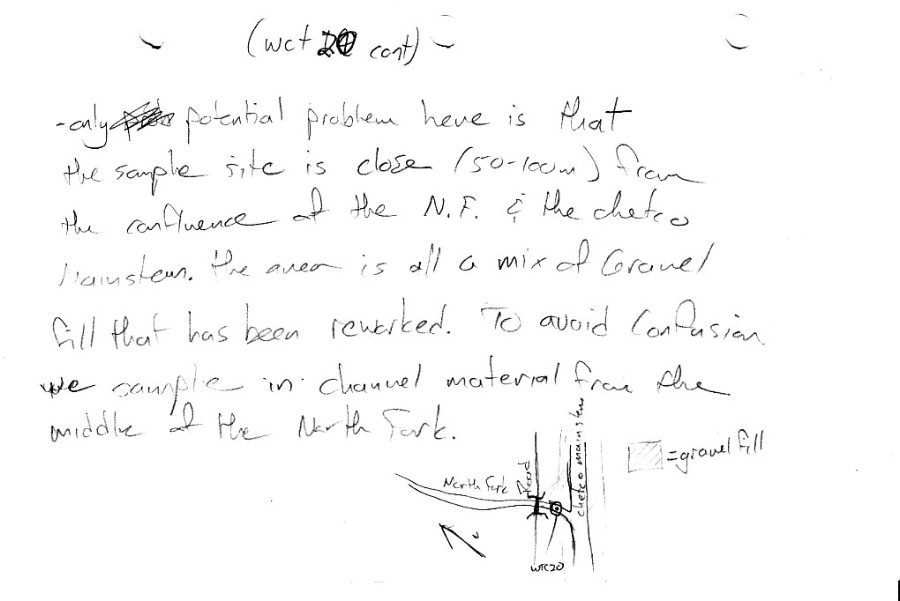 (WCT 20 cont)
-only potential problem here is that
the sample site is close (50-100m) from
the confluence of the N.F. & the chetco
Mainstem. the area is all a mix of Gravel
fill that has been reworked. To avoid Confusion
we sample in channel material from the
middle of the North Fork.
= gravel fill
North Fork
Road
chetco mainstem
WTC20